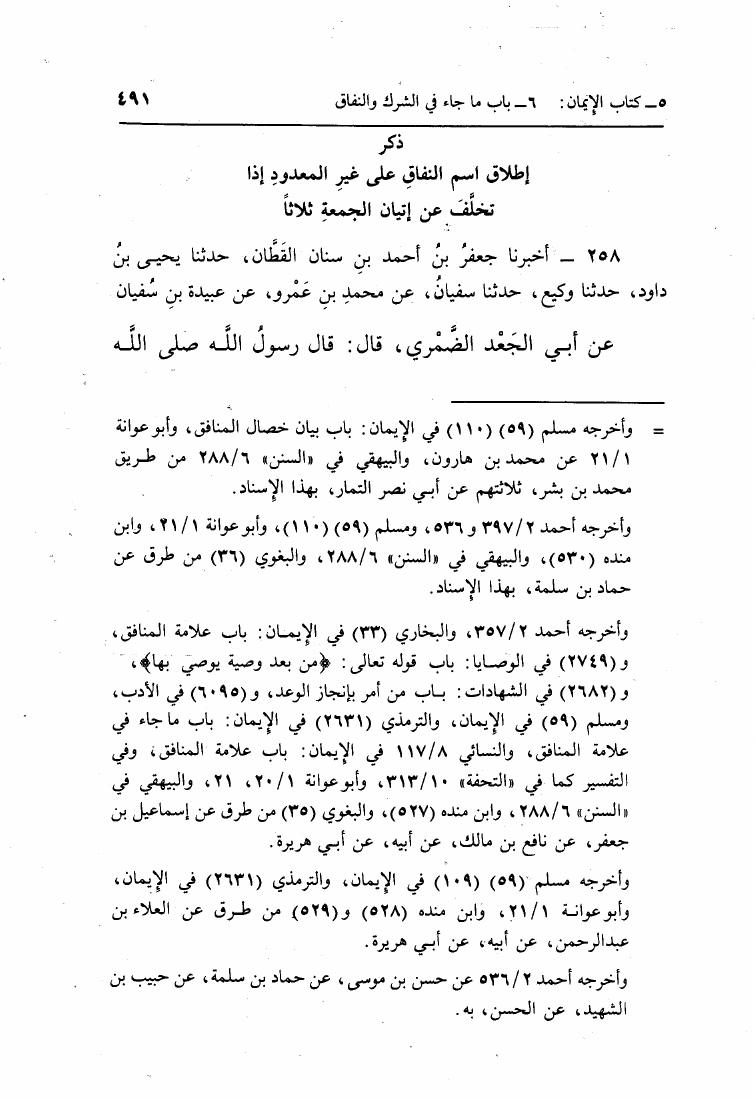 ٥ـ كتاب الإيمان: ٦ـ باب ما جاء في الشرك والنفاق ٤٩١
ذكر
إطلاق اسم النفاقِ على غيرِ المعدودِ إذا
تخلَّفَ عن إتيان الجمعةِ ثلاثاً
٢٥٨ ـ أخبرنا جعفرُ بنُ أحمد بنِ سنان القَطَّان، حدثنا يحيى بنُ
داود، حدثنا وكيع، حدثنا سفيانُ، عن محمدِ بنِ عَمْرو، عن عبيدة بنِ سُفيان
عن أبي الجَعْد الضَّمْري، قال: قال رسولُ اللَّه صلى اللَّه
= وأخرجه مسلم (٥٩) (١١٠) في الإيمان: باب بيان خصال المنافق، وأبو عوانة
٢١/١ عن محمد بن هارون، والبيهقي في «السنن» ٢٨٨/٦ من طريق
محمد بن بشر، ثلاثتهم عن أبي نصر التمار، بهذا الإسناد.
وأخرجه أحمد ٣٩٧/٢ و ٥٣٦، ومسلم (٥٩) (١١٠)، وأبو عوانة ٢١/١، وابن
منده (٥٣٠)، والبيهقي في «السنن» ٢٨٨/٦، والبغوي (٣٦) من طرق عن
حماد بن سلمة، بهذا الإسناد.
وأخرجه أحمد ٣٥٧/٢، والبخاري (٣٣) في الإيمان: باب علامة المنافق،
و (٢٧٤٩) في الوصايا: باب قوله تعالى: ﴿من بعد وصية يوصي بها﴾،
و (٢٦٨٢) في الشهادات: باب من أمر بإنجاز الوعد، و (٦٠٩٥) في الأدب،
ومسلم (٥٩) في الإيمان، والترمذي (٢٦٣١) في الإيمان: باب ما جاء في
علامة المنافق، والنسائي ١١٧/٨ في الإيمان: باب علامة المنافق، وفي
التفسير كما في «التحفة» ٣١٣/١٠، وأبو عوانة ٢٠/١، ٢١، والبيهقي في
«السنن» ٢٨٨/٦، وابن منده (٥٢٧)، والبغوي (٣٥) من طرق عن إسماعيل بن
جعفر، عن نافع بن مالك، عن أبيه، عن أبي هريرة.
وأخرجه مسلم (٥٩) (١٠٩) في الإيمان، والترمذي (٢٦٣١) في الإيمان،
وأبو عوانة ٢١/١، وابن منده (٥٢٨) و (٥٢٩) من طرق عن العلاء بن
عبدالرحمن، عن أبيه، عن أبي هريرة.
وأخرجه أحمد ٥٣٦/٢ عن حسن بن موسى، عن حماد بن سلمة، عن حبيب بن
الشهيد، عن الحسن، به.